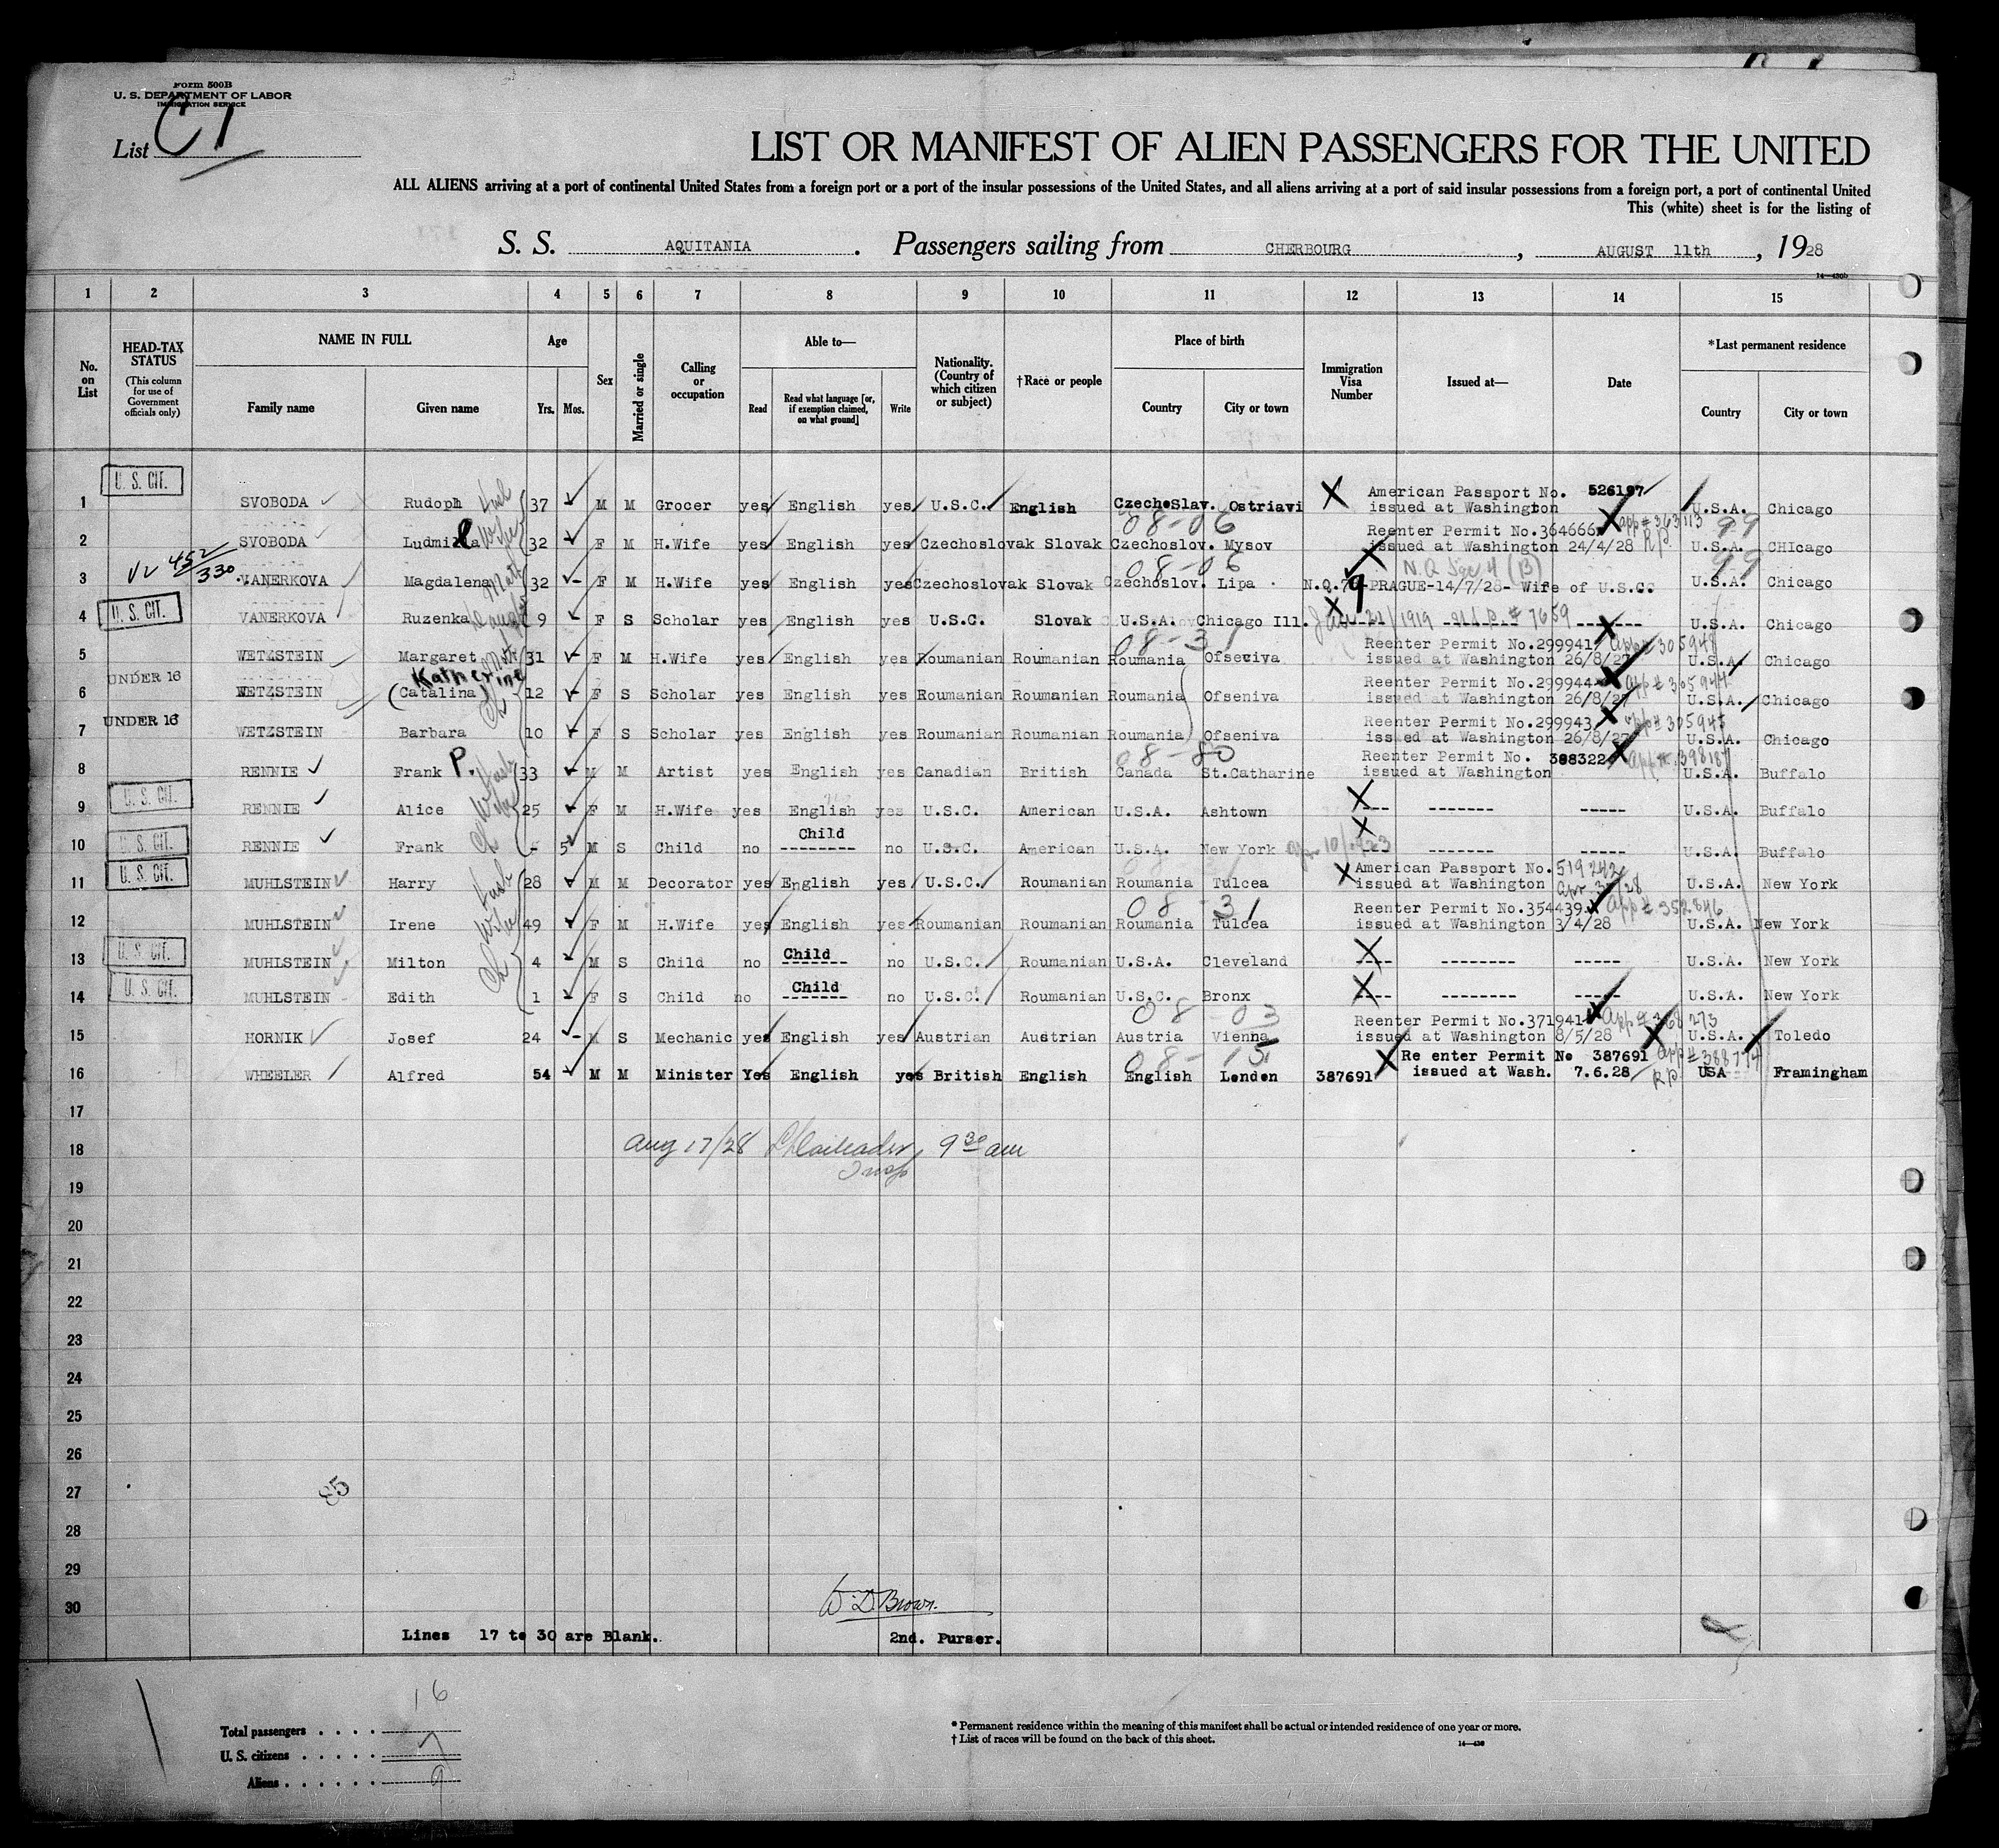 Form 500B
U. S. DEPARTMENT OF LABOR
IMMIGRATION SERVICE
List C1
LIST OR MANIFEST OF ALIEN PASSENGERS FOR THE UNITED
ALL ALIENS arriving at a port of continental United States from a foreign port or a port of the insular possessions of the United States, and all aliens arriving at a port of said insular possessions from a foreign port, a port of continental United
This (white) sheet is for the listing of
S. S. AQUITANIA. Passengers sailing from CHERBOURG, AUGUST 11th, 1928
14—430b
1 2 3 4 5 6 7 8 9 10 11 12 13 14 15
No. on List
HEAD-TAX STATUS (This column for use of Government officials only)
NAME IN FULL Family name Given name
Age Yrs. Mos.
Sex
Married or single
Calling or occupation
Able to— Read Read what language [or, if exemption claimed, on what ground] Write
Nationality. (Country of which citizen or subject)
†Race or people
Place of birth Country City or town
Immigration Visa Number
Issued at—
Date
*Last permanent residence Country City or town
1 U. S. CIT. SVOBODA Rudoph Husb 37 M M Grocer yes English yes U.S.C. English CzechoSlav. Ostriavi American Passport No. 526197 issued at Washington U.S.A. Chicago
08-06
2 SVOBODA Ludmilla Wife 32 F M H.Wife yes English yes Czechoslovak Slovak Czechoslov. Mysov Reenter Permit No.364666 app # 363113 issued at Washington 24/4/28 R.P. U.S.A. CHIcago
99
08-06
3 452/330 VANERKOVA Magdalena Moth 32 F M H.Wife yes English yes Czechoslovak Slovak Czechoslov. Lipa N.Q.79 PRAGUE-14/7/28- Wife of U.S.C. N.Q Sec 4 (B) U.S.A. Chicago
99
4 U. S. CIT. VANERKOVA Ruzenka Daughter 9 F S Scholar yes English yes U.S.C. Slovak U.S.A. Chicago Ill. Jan 21/1919 # 7659 U.S.A. Chicago
08-31
5 WETZSTEIN Margaret Moth 31 F M H.Wife yes English yes Roumanian Roumanian Roumania Ofseviva Reenter Permit No.299941 app # 305948 issued at Washington 26/8/27 U.S.A. Chicago
6 UNDER 16 WETZSTEIN Katherine (Catalina) Ch 12 F S Scholar yes English yes Roumanian Roumanian Roumania Ofseniva Reenter Permit No.299944 app # 305944 issued at Washington 26/8/27 U.S.A. Chicago
7 UNDER 16 WETZSTEIN Barbara 10 F S Scholar yes English yes Roumanian Roumanian Roumania Ofseniva Reenter Permit No.299943 app # 305945 issued at Washington 26/8/27 U.S.A. Chicago
08-80
8 RENNIE Frank P. Husb 33 M M Artist yes English yes Canadian British Canada St.Catharine Reenter Permit No. 388322 app #. 398187 issued at Washington U.S.A. Buffalo
9 U. S. CIT. RENNIE Alice Wife 25 F M H.Wife yes English yes U.S.C. American U.S.A. Ashtown ---- -------- ----- U.S.A. Buffalo
10 U. S. CIT. RENNIE Frank Ch - 5 M S Child no Child -------- no U.S.C. American U.S.A. New York ---- ------- ----- U.S.A. Buffalo
11 U. S. CIT. MUHLSTEIN Harry Husb 28 M M Decorator yes English yes U.S.C. Roumanian Roumania Tulcea American Passport No. 519242 issued at Washington U.S.A. New York
08-31
12 MUHLSTEIN Irene Wife 49 F M H.Wife yes English yes Roumanian Roumanian Roumania Tulcea Reenter Permit No.354439 app # 352846 issued at Washington 3/4/28 U.S.A. New York
13 U. S. CIT. MUHLSTEIN Milton Ch 4 M S Child no Child ------- no U.S.C. Roumanian U.S.A. Cleveland ---- -------- ----- U.S.A. New York
14 U. S. CIT. MUHLSTEIN Edith 1 F S Child no Child ------- no U.S.C. Roumanian U.S.C. Bronx ---- -------- ----- U.S.A. New York
08-03
15 HORNIK Josef 24 - M S Mechanic yes English yes Austrian Austrian Austria Vienna Reenter Permit No.371941 app # 368273 issued at Washington 8/5/28 U.S.A. Toledo
08-15
16 WHEELER Alfred 54 M M Minister Yes English yes British English English London 387691 Re enter Permit No 387691 app # 388774 issued at Wash. 7.6.28 R.P. USA Framingham
17
18 Aug 17/28 Insp 9 30 am
19
20
21
22
23
24
25
26
27 85
28
29
30
W. D. Brown.
Lines 17 to 30 are Blank. 2nd. Purser.
Total passengers . . . . 16
U. S. citizens . . . . . 7
Aliens . . . . . . 9
* Permanent residence within the meaning of this manifest shall be actual or intended residence of one year or more.
† List of races will be found on the back of this sheet.
14—430